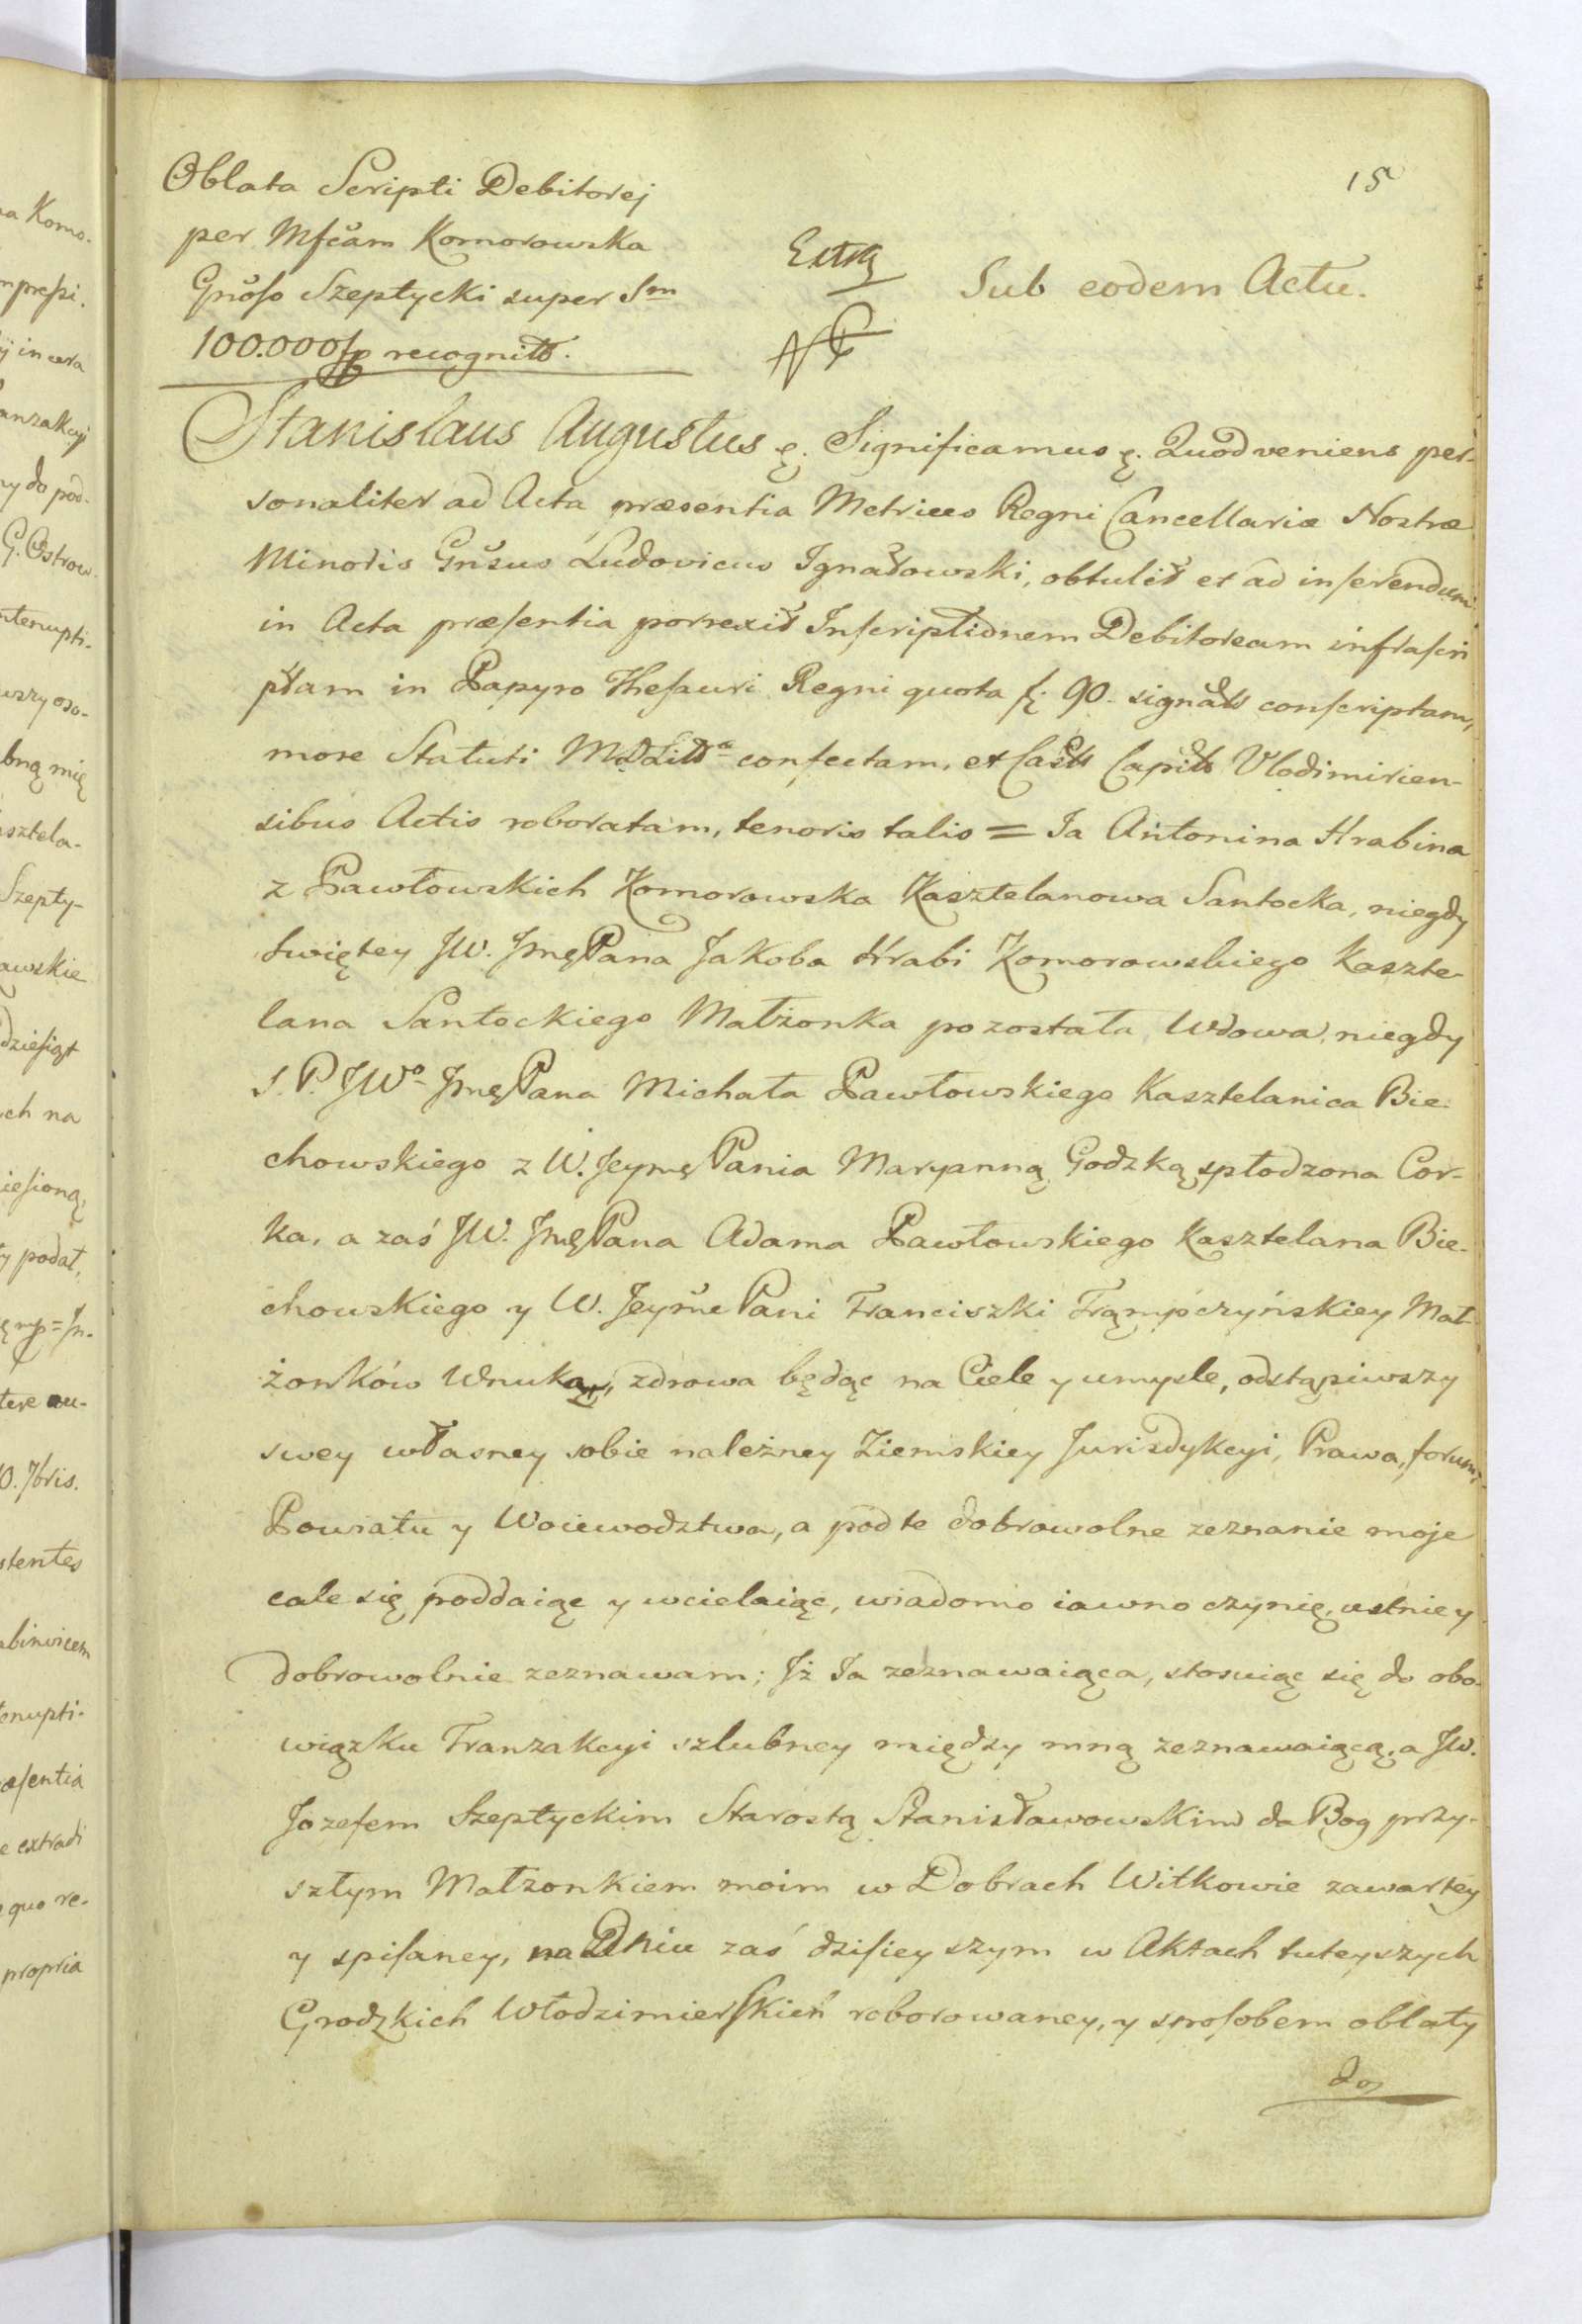 15
Oblata Scripti Debitorej
per Mfcam Komorowska
Gnoso Szeptycki super Sm
100.000 fp recognitt.
Extrą
Sub eodem Actu.
Stanislaus Augustus ę. Significamus ę. Quod veniens per-
sonaliter ad Acta præsentia Metrices Regni Cancellariæ Nostræ
Minoris Gnsus Ludovicus Ignatowski, obtulit et ad inserendum
in Acta præsentia porrexit Inscriptionem Debitoream infrascri
ptam in Papyro Thesauri Regni quota fl. 90. signats conscriptam,
more Statuti M.D.Litt confectam, et Casts Capits Vlodimirien-
sibus Actis roboratam, tenoris talis = Ja Antonina Hrabina
z Pawłowskich Komorowska Kasztelanowa Santocka, niegdy
Swiętey JW. JmęPana Jakoba Hrabi Komorowskiego Kaszte-
lana Santockiego Małżonka pozostała Wdowa, niegdy
S. P. JWo JmęPana Michała Pawłowskiego Kasztelanica Bie-
chowskiego z W. Jeymę Pania Maryanną Godzką spłodzona Cor-
ka, a zaś JW. JmęPana Adama Pawłowskiego Kasztelana Bie-
chowskiego y W. Jeyme Pani Franciszki Trąmpczyńskiey Mał-
żonków Wnuka, zdrowa będąc na Ciele y umysle, odstąpiwszy
swey własney sobie należney Ziemskiey Jurisdykcyi, Prawa, forum,
Powiatu y Woiewodztwa, a pod te dobrowolne zeznanie moje
cale się poddaiąc y wcielaiąc, wiadomo iawno czynię, ustnie y
dobrowolnie zeznawam; Jż Ja zeznawaiąca, stosuiąc się do obo-
wiązku Tranzakcyi szlubney między mną zeznawaiącą, a JW.
Jozefem Szeptyckim Starostą Stanisławowskim da Bog przy-
szłym Małzonkiem moim w Dobrach Witkowie zawartey
y spisaney, na Dniu zaś dzisieyszym w Aktach tuteyszych
Grodzkich Włodzimierskich roborowaney, y sposobem oblaty
do